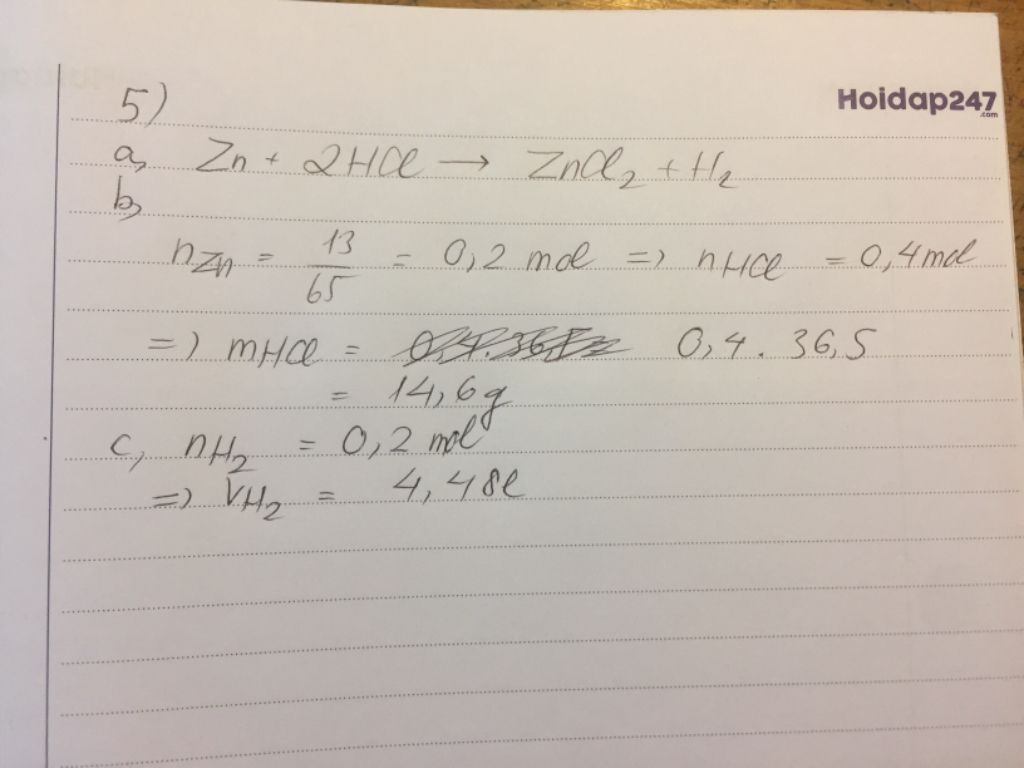 Hoidap247
.com
5)
a, Zn + 2HCl → ZnCl₂ + H₂
b,
nZn = 13/65 = 0,2 mol => nHCl = 0,4 mol
=> mHCl = 0,4 . 36,5
= 14,6g
c, nH₂ = 0,2 mol
=> VH₂ = 4,48l